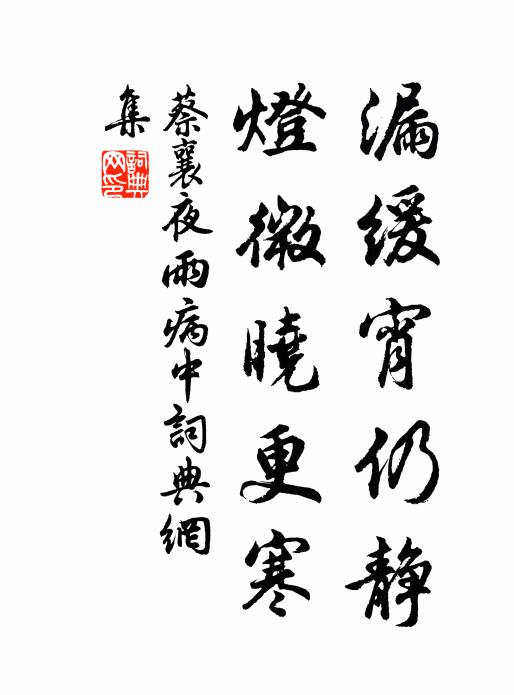 漏緩宵仍静
燈微曉更寒
蔡襄夜雨病中詞典網
集
詞典网印